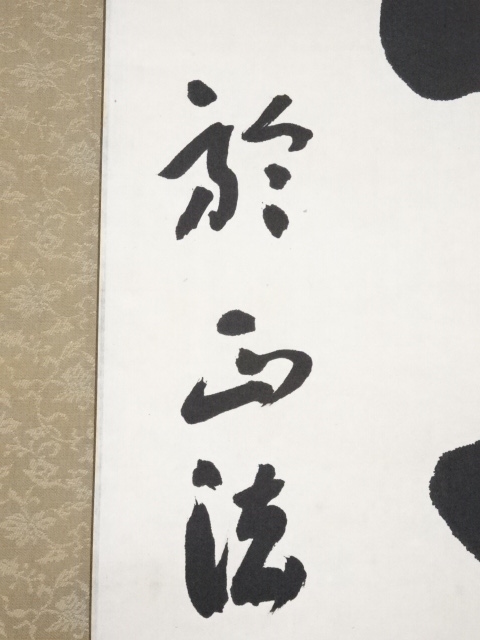 於正法